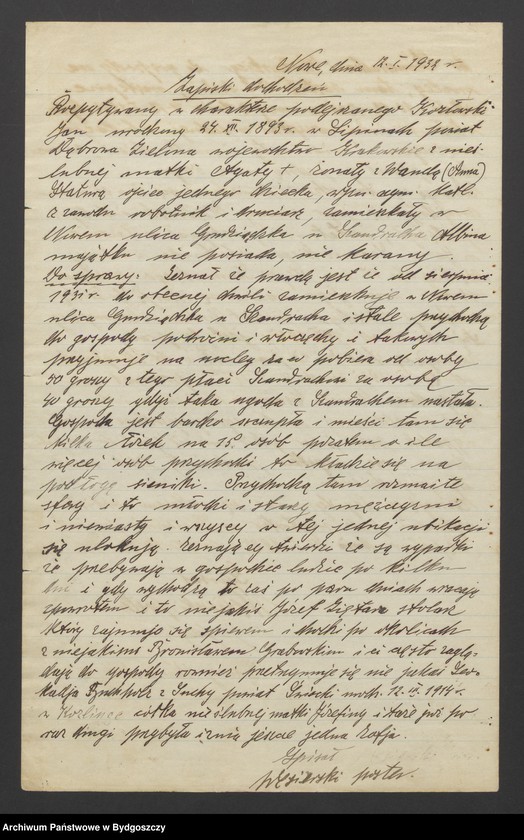 Nowe, dnia 12. I. 1932 r.
Zapiski dochodzeń
Rozpytywany w charakterze podejrzanego Kozłowski
Jan urodzony 24. XII. 1893 r. w Lipinach powiat
Dąbrowa Zielona województwo Krakowskie z nieś-
lubnej matki Agaty +, żonaty z Wandą (Anna)
Staturą ojciec jednego dziecka, wyzn. rzym. katl.
z zawodu robotnik i bruciarz, zamieszkały w
Nowem ulica Grudziądzka u Skandracha Albina
majątku nie posiada, nie karany.
Do sprawy: Zeznał że prawdą jest że od sierpnia
1931 r do obecnej chwili zamieszkuje w Nowem
ulica Grudziądzka u Skandracha i stale przychodzą
do gospody podróżni i włóczędzy i takowych
przyjmuje na nocleg za co pobiera od osoby
50 groszy z tego płaci Skandrachowi za osobę
40 groszy gdyż taka ugoda z Skandrachem nastała.
Gospoda jest bardzo szczupła i mieści tam się
kilka łóżek na 15 osób pozatem o ile
więcej osób przychodzi to kładzie się na
podłogę sienniki. Przychodzą tam rozmaite
sfery i to młodzi i starzy mężczyźni
i niewiasty i wszyscy w tej jednej ubikacji
się ulokują. Zeznający twierdzi że są wypadki
że przebywają w gospodzie ludzie po kilku
dni i gdy wychodzą to zaś po paru dniach wracają
zpowrotem i to niejakiś Józef Giętara stolarz
który zajmuje się śpiewem i chodzi po okolicach
z niejakimś Bronisławem Grabowskim i ci często zaglą-
dają do gospody również przetrzymuje się nie jakaś Leo-
kadja Buchholz z Suchy powiat Świecki urodz. 12. IV. 1914 r.
w córka nieślubnej matki Józefiny i też już po
raz drugi przybyła i z nią jeszcze jedna Zofja.
Spisał
Węsierski poster.
Archiwum Państwowe w Bydgoszczy